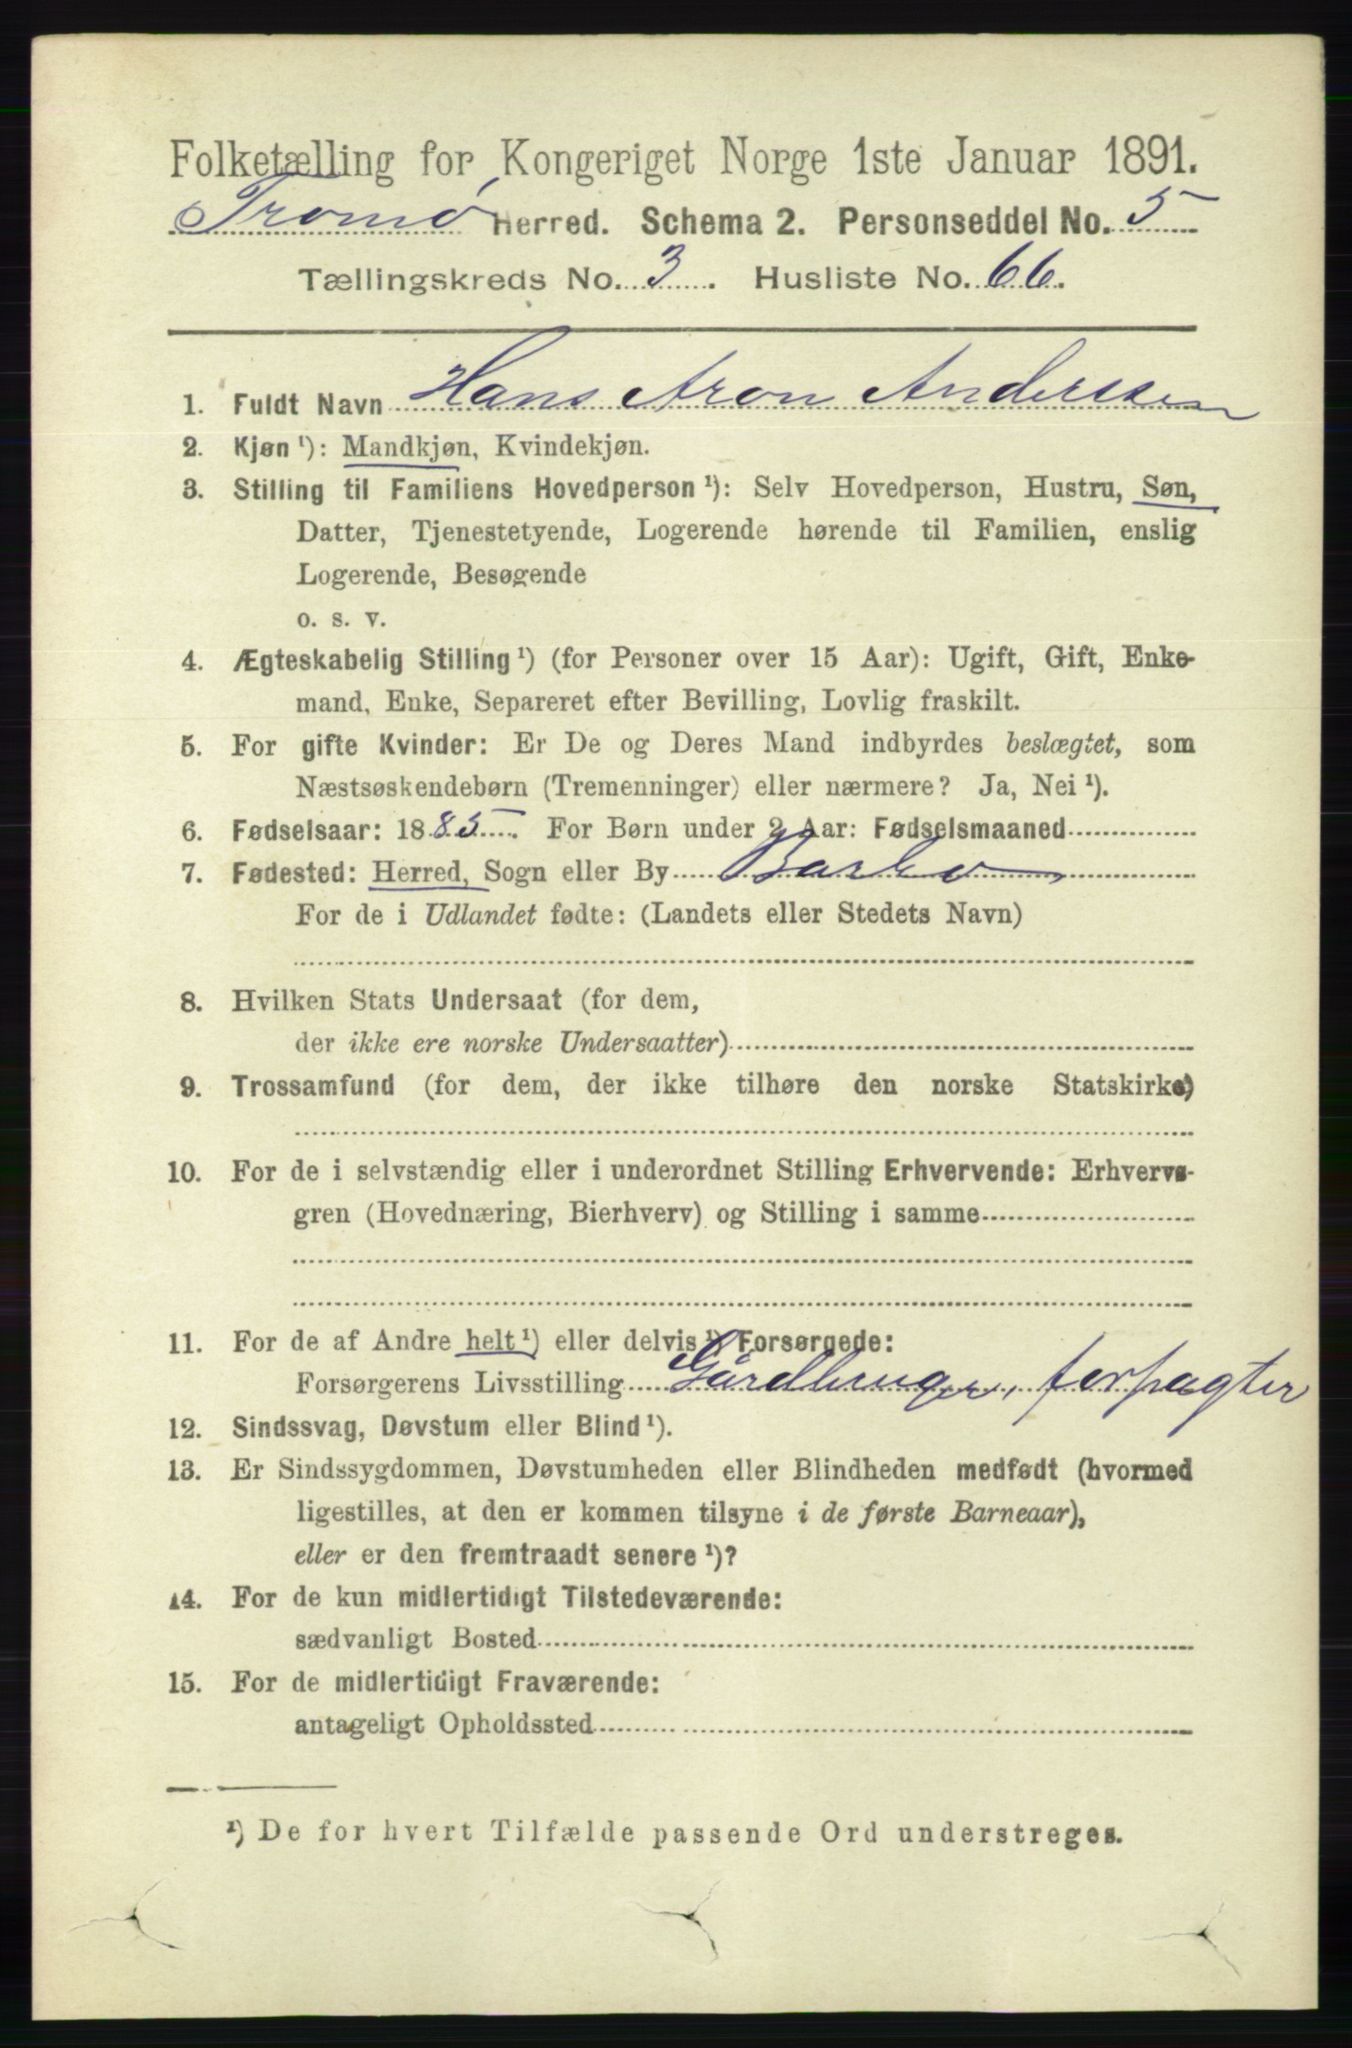 Folketælling for Kongeriget Norge 1ste Januar 1891.
Tromø Herred. Schema 2. Personseddel No. 5
Tællingskreds No. 3. Husliste No. 66.
1. Fuldt Navn Hans Aron Anderssen
2. Kjøn ¹): Mandkjøn, Kvindekjøn.
3. Stilling til Familiens Hovedperson ¹): Selv Hovedperson, Hustru, Søn,
Datter, Tjenestetyende, Logerende hørende til Familien, enslig
Logerende, Besøgende
o. s. v.
4. Ægteskabelig Stilling ¹) (for Personer over 15 Aar): Ugift, Gift, Enke-
mand, Enke, Separeret efter Bevilling, Lovlig fraskilt.
5. For gifte Kvinder: Er De og Deres Mand indbyrdes beslægtet, som
Næstsøskendebørn (Tremenninger) eller nærmere? Ja, Nei ¹).
6. Fødselsaar: 1885. For Børn under 2 Aar: Fødselsmaaned
7. Fødested: Herred, Sogn eller By Barbo
For de i Udlandet fødte: (Landets eller Stedets Navn)
8. Hvilken Stats Undersaat (for dem,
der ikke ere norske Undersaatter)
9. Trossamfund (for dem, der ikke tilhøre den norske Statskirke)
10. For de i selvstændig eller i underordnet Stilling Erhvervende: Erhvervs-
gren (Hovednæring, Bierhverv) og Stilling i samme
11. For de af Andre helt ¹) eller delvis ¹) Forsørgede:
Forsørgerens Livsstilling Gårdbruger, forpagter
12. Sindssvag, Døvstum eller Blind ¹).
13. Er Sindssygdommen, Døvstumheden eller Blindheden medfødt (hvormed
ligestilles, at den er kommen tilsyne i de første Barneaar),
eller er den fremtraadt senere ¹)?
14. For de kun midlertidigt Tilstedeværende:
sædvanligt Bosted
15. For de midlertidigt Fraværende:
antageligt Opholdssted
¹) De for hvert Tilfælde passende Ord understreges.